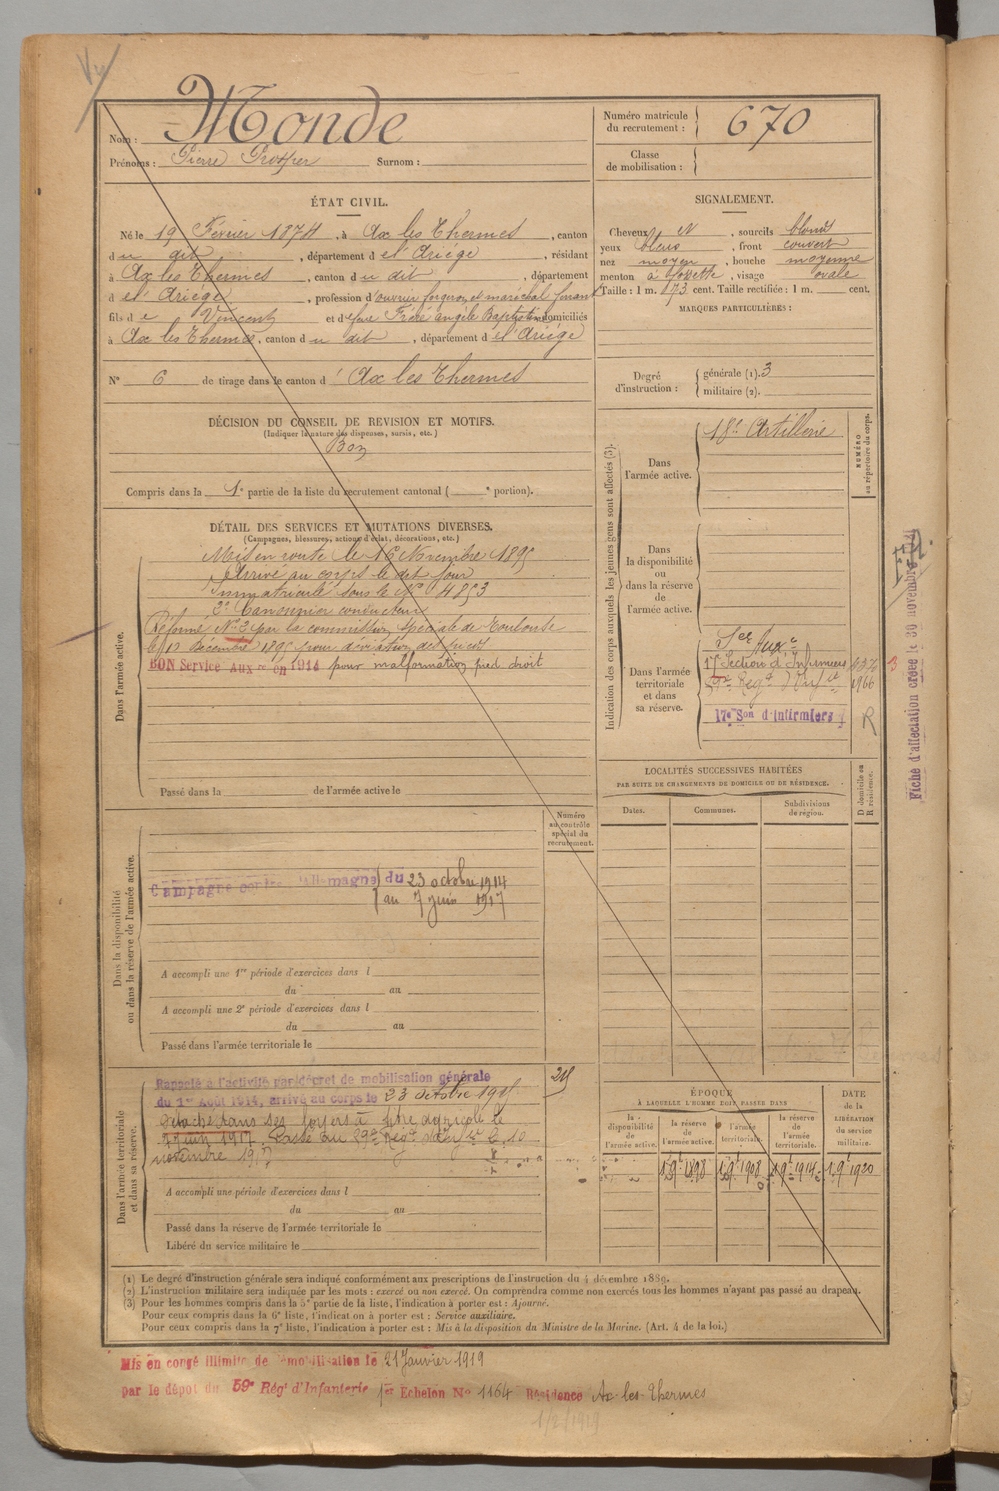 Vu
Nom : Monde
Prénoms : Pierre Prosper Surnom :
Numéro matricule du recrutement : 670
Classe de mobilisation :
ÉTAT CIVIL.
Né le 19 Février 1874, à Ax les Thermes, canton
du dit, département de l'Ariège, résidant
à Ax les Thermes, canton du dit, département
de l'Ariège, profession d'ouvrier forgeron et maréchal ferrant
fils de Vincent et d Angèle Baptistine domiciliés
à Ax les Thermes, canton du dit, département de l'Ariège
N° 6 de tirage dans le canton d' Ax les Thermes
SIGNALEMENT.
Cheveux , sourcils blonds
yeux bleus, front couvert
nez moyen, bouche moyenne
menton à fossette, visage ovale
Taille : 1 m. 673 cent. Taille rectifiée : 1 m. cent.
MARQUES PARTICULIÈRES :
Degré d'instruction : générale (1). 3
militaire (2).
DÉCISION DU CONSEIL DE REVISION ET MOTIFS.
(Indiquer la nature des dispenses, sursis, etc.)
Bon
Compris dans la 1e partie de la liste du recrutement cantonal ( e portion).
DÉTAIL DES SERVICES ET MUTATIONS DIVERSES.
(Campagnes, blessures, actions d'éclat, décorations, etc.)
Dans l'armée active.
Mis en route le 16 Novembre 1895
Arrivé au corps le dit jour
Immatriculé sous le N° 4853
2e Canonnier conducteur
Réformé N° 2 par la commission spéciale de Toulouse
le 12 Décembre 1895 pour déviation des pieds
BON Service Auxre en 1914 pour malformation pied droit
Passé dans la de l'armée active le
Dans la disponibilité ou dans la réserve de l'armée active.
Numéro au contrôle spécial du recrutement.
Campagne contre l'Allemagne du 23 octobre 1914
au 7 juin 1917
A accompli une 1re période d'exercices dans l
du au
A accompli une 2e période d'exercices dans l
du au
Passé dans l'armée territoriale le
Dans l'armée territoriale et dans sa réserve.
Rappelé à l'activité par décret de mobilisation générale
du 1er Août 1914, arrivé au corps le 23 octobre 1915
Détaché dans ses foyers à titre agricole le
7 juin 1917. Passé au 59e Régt d'Infie le 10
novembre 1917
A accompli une période d'exercices dans l
du au
Passé dans la réserve de l'armée territoriale le
Libéré du service militaire le
Indication des corps auxquels les jeunes gens sont affectés (3).
NUMÉRO au répertoire du corps.
Dans l'armée active.
18e Artillerie
Dans la disponibilité ou dans la réserve de l'armée active.
Dans l'armée territoriale et dans sa réserve.
Ser Auxre
17e Section d'Infirmiers
59e Régt d'Infie 1966
17e Son d'Infirmiers R
LOCALITÉS SUCCESSIVES HABITÉES
PAR SUITE DE CHANGEMENTS DE DOMICILE OU DE RÉSIDENCE.
Dates. Communes. Subdivisions de région. D domicile ou R résidence.
ÉPOQUE
À LAQUELLE L'HOMME DOIT PASSER DANS
la disponibilité de l'armée active. la réserve de l'armée active. l'armée territoriale. la réserve de l'armée territoriale.
DATE de la LIBÉRATION du service militaire.
1 9e 1898 1 9e 1908 1 9e 1914 1 9e 1920
Fiche d'affectation créée le 30 novembre
(1) Le degré d'instruction générale sera indiqué conformément aux prescriptions de l'instruction du 4 décembre 1889.
(2) L'instruction militaire sera indiquée par les mots : exercé ou non exercé. On comprendra comme non exercés tous les hommes n'ayant pas passé au drapeau.
(3) Pour les hommes compris dans la 5e partie de la liste, l'indication à porter est : Ajourné.
Pour ceux compris dans la 6e liste, l'indication à porter est : Service auxiliaire.
Pour ceux compris dans la 7e liste, l'indication à porter est : Mis à la disposition du Ministre de la Marine. (Art. 4 de la loi.)
Mis en congé illimité de démobilisation le 21 Janvier 1919
par le dépôt du 59e Régt d'Infanterie 1er Echelon N° 1164 Résidence Ax-les-Thermes
1/2/1919